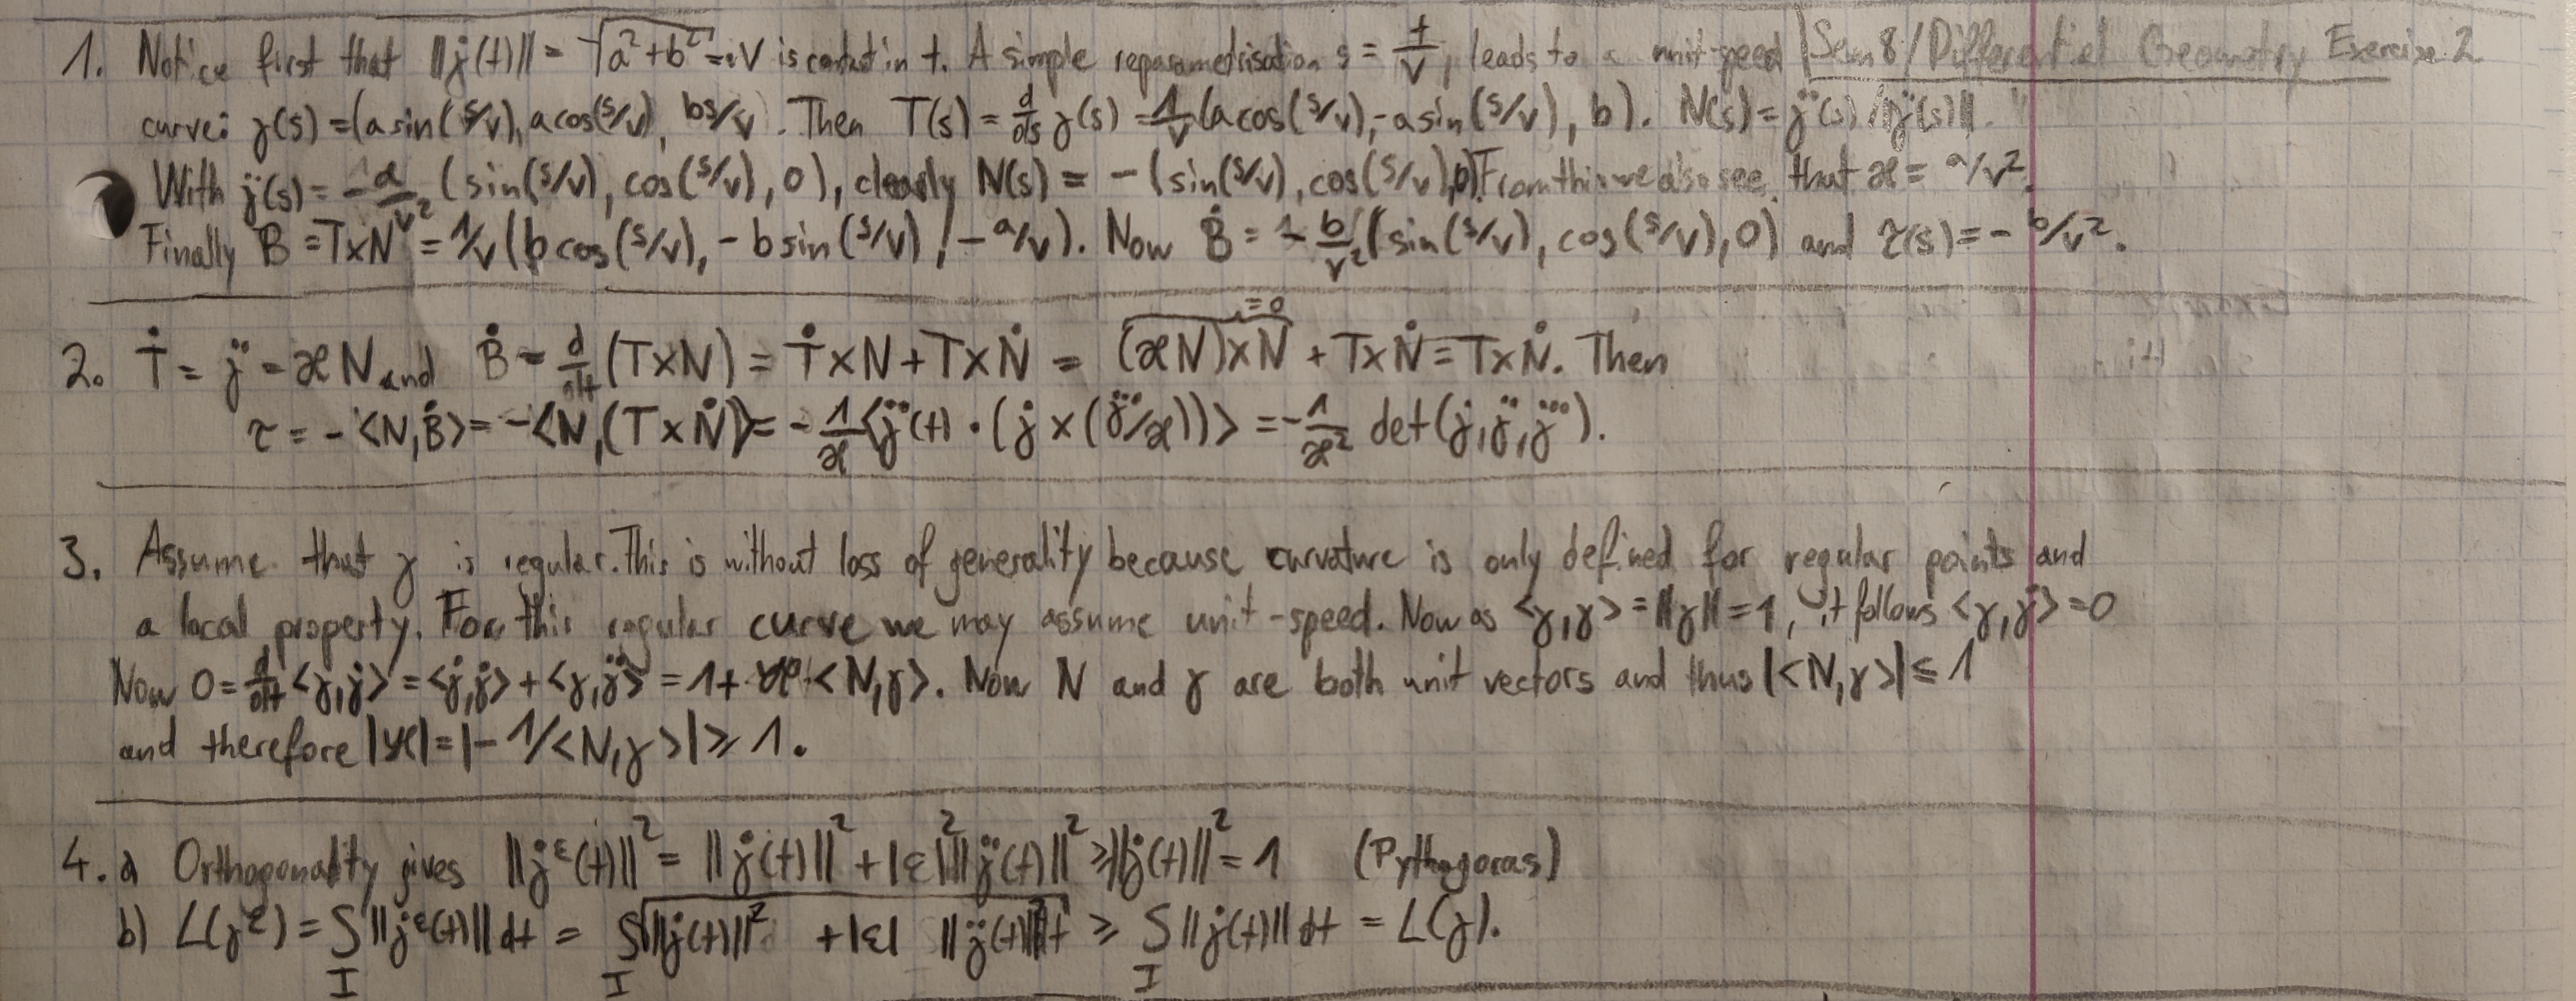 1. Notice first that ||γ̇(t)|| = √(a²+b²) =: V is constant in t. A simple reparametrisation s = t/V, leads to a unit-speed | Sem 8 / Differential Geometry Exercise 2
curve: γ(s) = (a sin(s/v), a cos(s/v), bs/v). Then T(s) = d/ds γ(s) = 1/v (a cos(s/v), -a sin(s/v), b). N(s) = γ̈(s) / ||γ̈(s)||.
With γ̈(s) = -a/v² (sin(s/v), cos(s/v), 0), clearly N(s) = -(sin(s/v), cos(s/v), 0). From this we also see, that æ = a/v².
Finally B = T×N = 1/v (b cos(s/v), -b sin(s/v), -a/v). Now Ḃ = - b/v² (sin(s/v), cos(s/v), 0) and τ(s) = - b/v².
2. Ṫ = γ̈ = æN and Ḃ = d/dt (T×N) = Ṫ×N + T×Ṅ = (æN)×N (=0) + T×Ṅ = T×Ṅ. Then
τ = -<N, Ḃ> = -<N, (T×Ṅ)> = - 1/æ <γ̈(t) · (γ̇ × (γ⃛/æ))> = - 1/æ² det(γ̇, γ̈, γ⃛).
3. Assume that γ is regular. This is without loss of generality because curvature is only defined for regular points and
a local property. For this regular curve we may assume unit-speed. Now as <γ,γ> = ||γ|| = 1, it follows <γ,γ̇> = 0
Now 0 = d/dt <γ,γ̇> = <γ̇,γ̇> + <γ,γ̈> = 1 + æ <N,γ>. Now N and γ are both unit vectors and thus |<N,γ>| ≤ 1
and therefore |æ| = |-1/<N,γ>| ≥ 1.
4. a Orthogonality gives ||γ̇ᵋ(t)||² = ||γ̇(t)||² + |ε|² ||γ̈(t)||² ≥ ||γ̇(t)||² = 1 (Pythagoras)
b) L(γᵋ) = ∫_I ||γ̇ᵋ(t)|| dt = ∫_I √(||γ̇(t)||² + |ε| ||γ̈(t)||²) dt ≥ ∫_I ||γ̇(t)|| dt = L(γ).